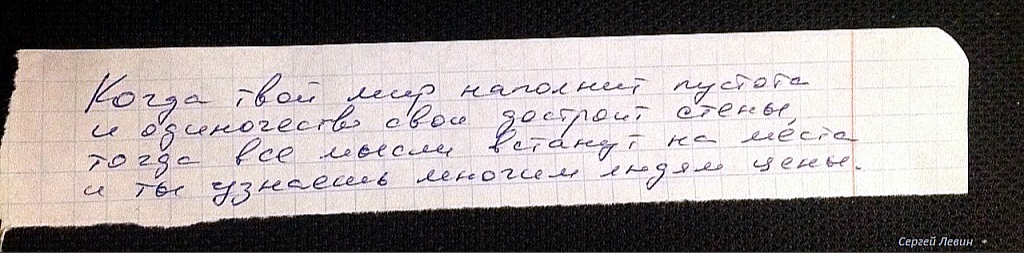 Когда твой мир наполнит пустота
и одиночество свои достроит стены,
тогда все мысли встанут на места
и ты узнаешь многим людям цены.
Сергей Левин